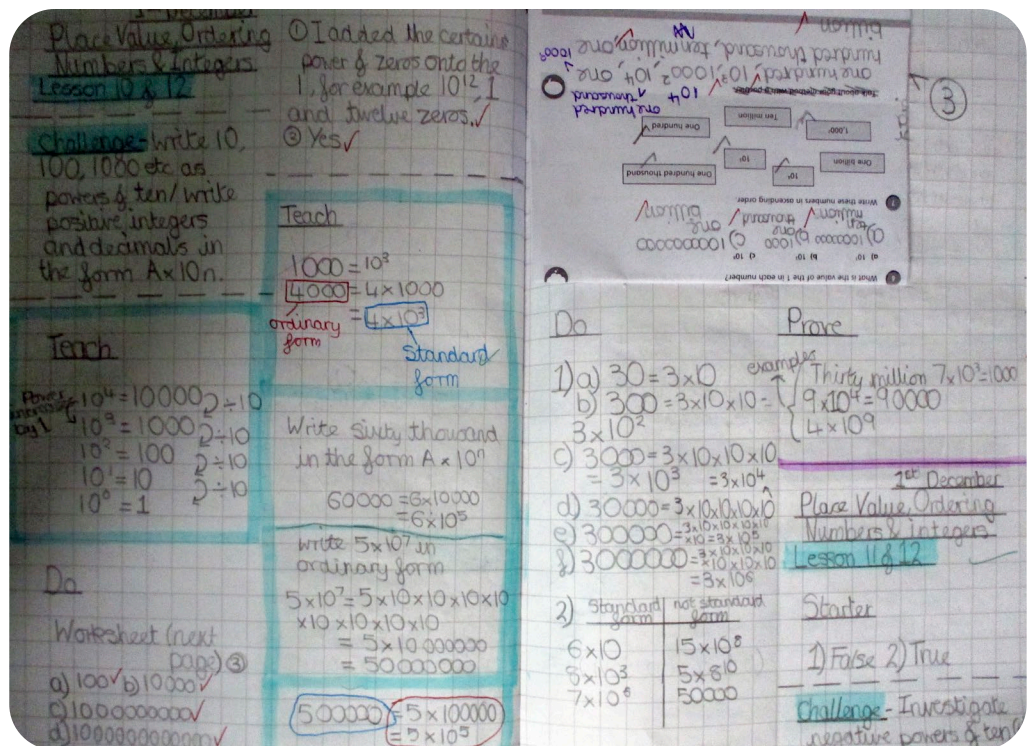 1st December
Place Value, Ordering
Numbers & Integers
Lesson 10 & 12
Challenge - Write 10,
100, 1000 etc as
powers of ten/write
positive, integers
and decimals in
the form A×10n.
Teach
Power
increases
by 1
10⁴ = 10000 ÷10
10³ = 1000 ÷10
10² = 100 ÷10
10¹ = 10 ÷10
10⁰ = 1
Do
Worksheet (next
page) ③
a) 100✓ b) 10000✓
c) 1000000000✓
d) 1000000000000✓
① I added the certain
power of zeros onto the
1, for example 10¹², 1
and twelve zeros.✓
② Yes✓
Teach
1000 = 10³
4000 = 4×1000
= 4×10³
ordinary
form
Standard
form
Write sixty thousand
in the form A × 10ⁿ
60000 = 6×10000
= 6×10⁵
Write 5×10⁷ in
ordinary form
5×10⁷ = 5×10×10×10×10
×10×10×10×10
= 5×10000000
= 50000000
500000 = 5×100000
= 5×10⁵
③
What is the value of the 1 in each number?
a) 10⁷ b) 10³ c) 10⁹
a) 10000000 b) 1000 c) 1000000000
ten
million
one
thousand
one
billion
Write these numbers in ascending order.
One billion
One hundred thousand
1,000²
Ten million
One hundred
10⁴
one hundred
thousand
one hundred, 10³, 1000², 10⁴, one
1000⁰
hundred thousand, ten million, one
billion
Do
1) a) 30 = 3×10
b) 300 = 3×10×10 =
3×10²
c) 3000 = 3×10×10×10
= 3×10³ = 3×10⁴
d) 30000 = 3×10×10×10×10
e) 300000 = 3×10×10×10×10
×10 = 3×10⁵
f) 3000000 = 3×10×10×10
×10×10×10
= 3×10⁶
2) Standard form | not standard form
6×10 | 15×10⁸
8×10³ | 5×8¹⁰
7×10⁶ | 50000
Prove
examples
Thirty million 7×10³=1000
9×10⁴ = 90000
4×10⁹
1st December
Place Value, Ordering
Numbers & integers
Lesson 11 & 12
Starter
1) False 2) True
Challenge - Investigate
negative powers of ten